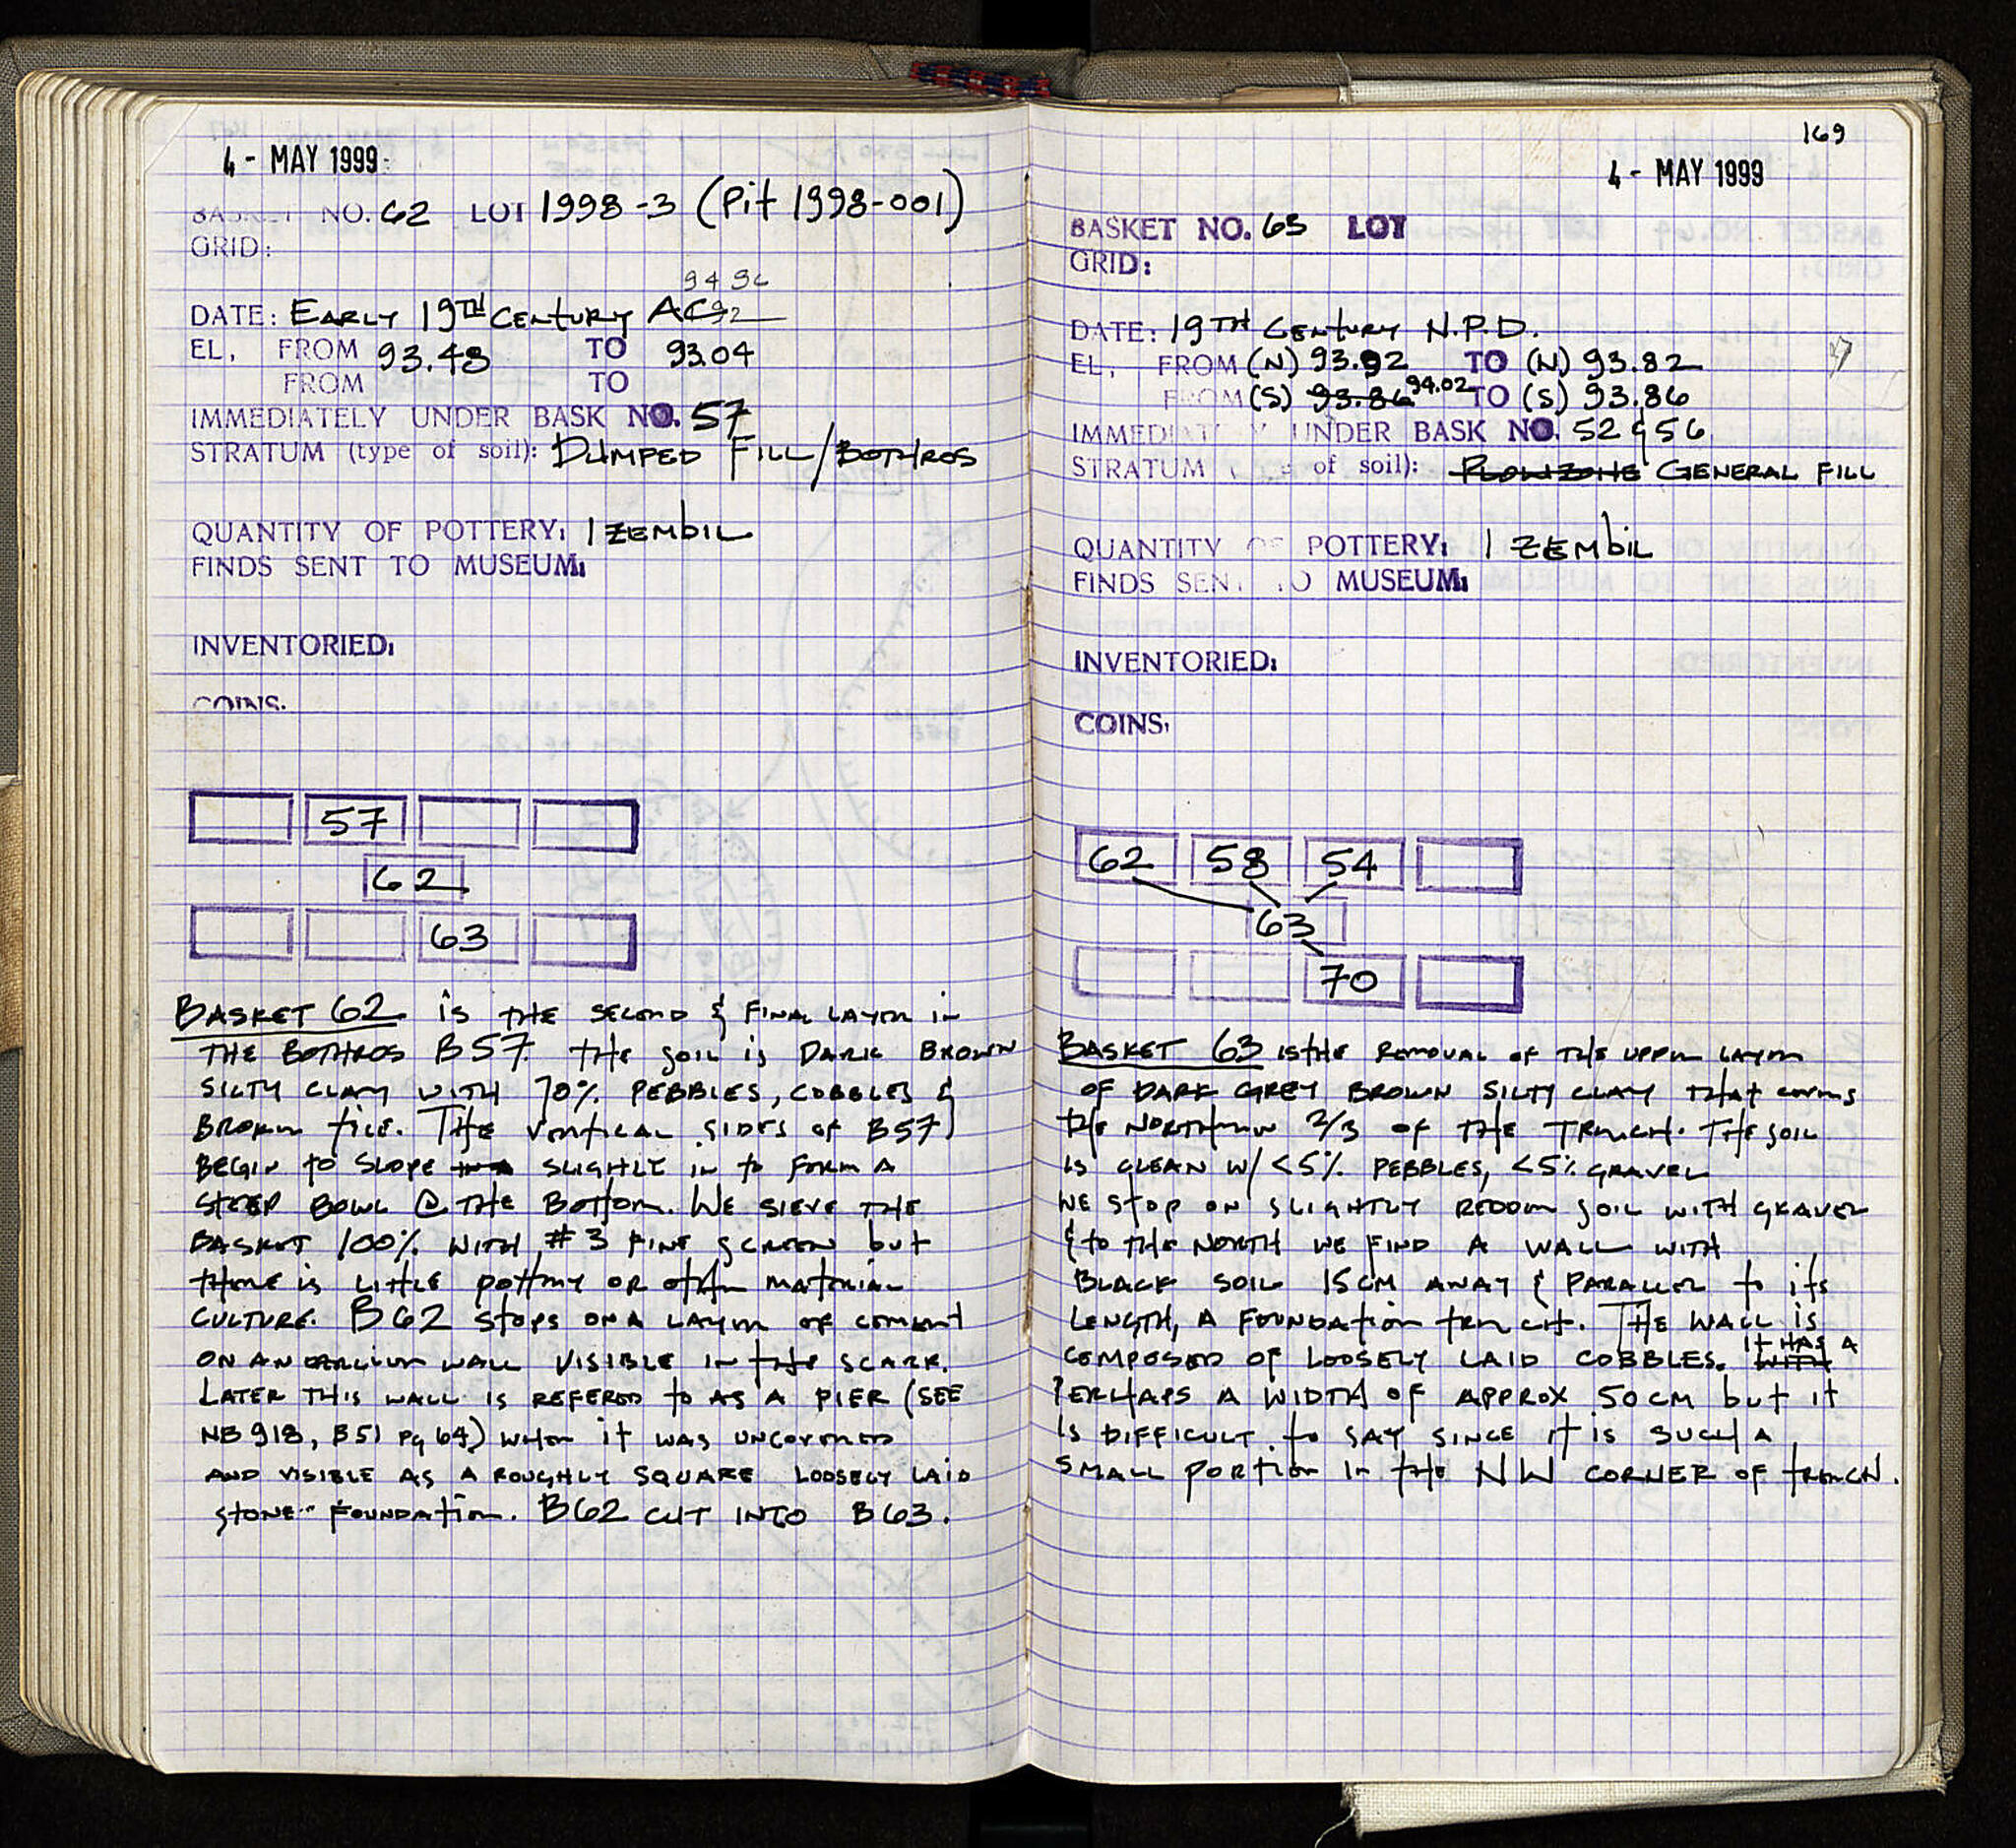 4 - MAY 1999
BASKET NO. 62 LOT 1998-3 (Pit 1998-001)
GRID:
DATE: EARLY 19TH CENTURY AC
EL, FROM 93.48 TO 93.04
FROM TO
IMMEDIATELY UNDER BASK NO. 57
STRATUM (type of soil): DUMPED FILL/BOTHROS
QUANTITY OF POTTERY: 1 ZEMBIL
FINDS SENT TO MUSEUM:
INVENTORIED:
COINS:
57
62
63
BASKET 62 IS THE SECOND & FINAL LAYER IN
THE BOTHROS B57. THE SOIL IS DARK BROWN
SILTY CLAY WITH 70% PEBBLES, COBBLES &
BROKEN TILE. THE VERTICAL SIDES OF B57
BEGIN TO SLOPE SLIGHTLY IN TO FORM A
STEEP BOWL @ THE BOTTOM. WE SIEVE THE
BASKET 100% WITH #3 FINE SCREEN BUT
THERE IS LITTLE POTTERY OR OTHER MATERIAL
CULTURE. B62 STOPS ON A LAYER OF CEMENT
ON AN EARLIER WALL VISIBLE IN THE SCARP.
LATER THIS WALL IS REFERED TO AS A PIER (SEE
NB 918, B51 Pg 64) WHEN IT WAS UNCOVERED
AND VISIBLE AS A ROUGHLY SQUARE LOOSELY LAID
STONE FOUNDATION. B62 CUT INTO B63.
169
4 - MAY 1999
BASKET NO. 63 LOT
GRID:
DATE: 19TH CENTURY N.P.D.
EL, FROM (N) 93.92 TO (N) 93.82
FROM (S) 93.86 94.02 TO (S) 93.86
IMMEDIATELY UNDER BASK NO. 52 & 56
STRATUM (type of soil): PLOWZONE GENERAL FILL
QUANTITY OF POTTERY: 1 ZEMBIL
FINDS SENT TO MUSEUM:
INVENTORIED:
COINS:
62 58 54
63
70
BASKET 63 IS THE REMOVAL OF THE UPPER LAYER
OF DARK GREY BROWN SILTY CLAY THAT COVERS
THE NORTHERN 2/3 OF THE TRENCH. THE SOIL
IS CLEAN W/ <5% PEBBLES, <5% GRAVEL
WE STOP ON SLIGHTLY REDDER SOIL WITH GRAVEL
& TO THE NORTH WE FIND A WALL WITH
BLACK SOIL 15CM AWAY & PARALLEL TO ITS
LENGTH, A FOUNDATION TRENCH. THE WALL IS
COMPOSED OF LOOSELY LAID COBBLES. WITH IT HAS A
PERHAPS A WIDTH OF APPROX 50CM BUT IT
IS DIFFICULT TO SAY SINCE IT IS SUCH A
SMALL PORTION IN THE NW CORNER OF TRENCH.